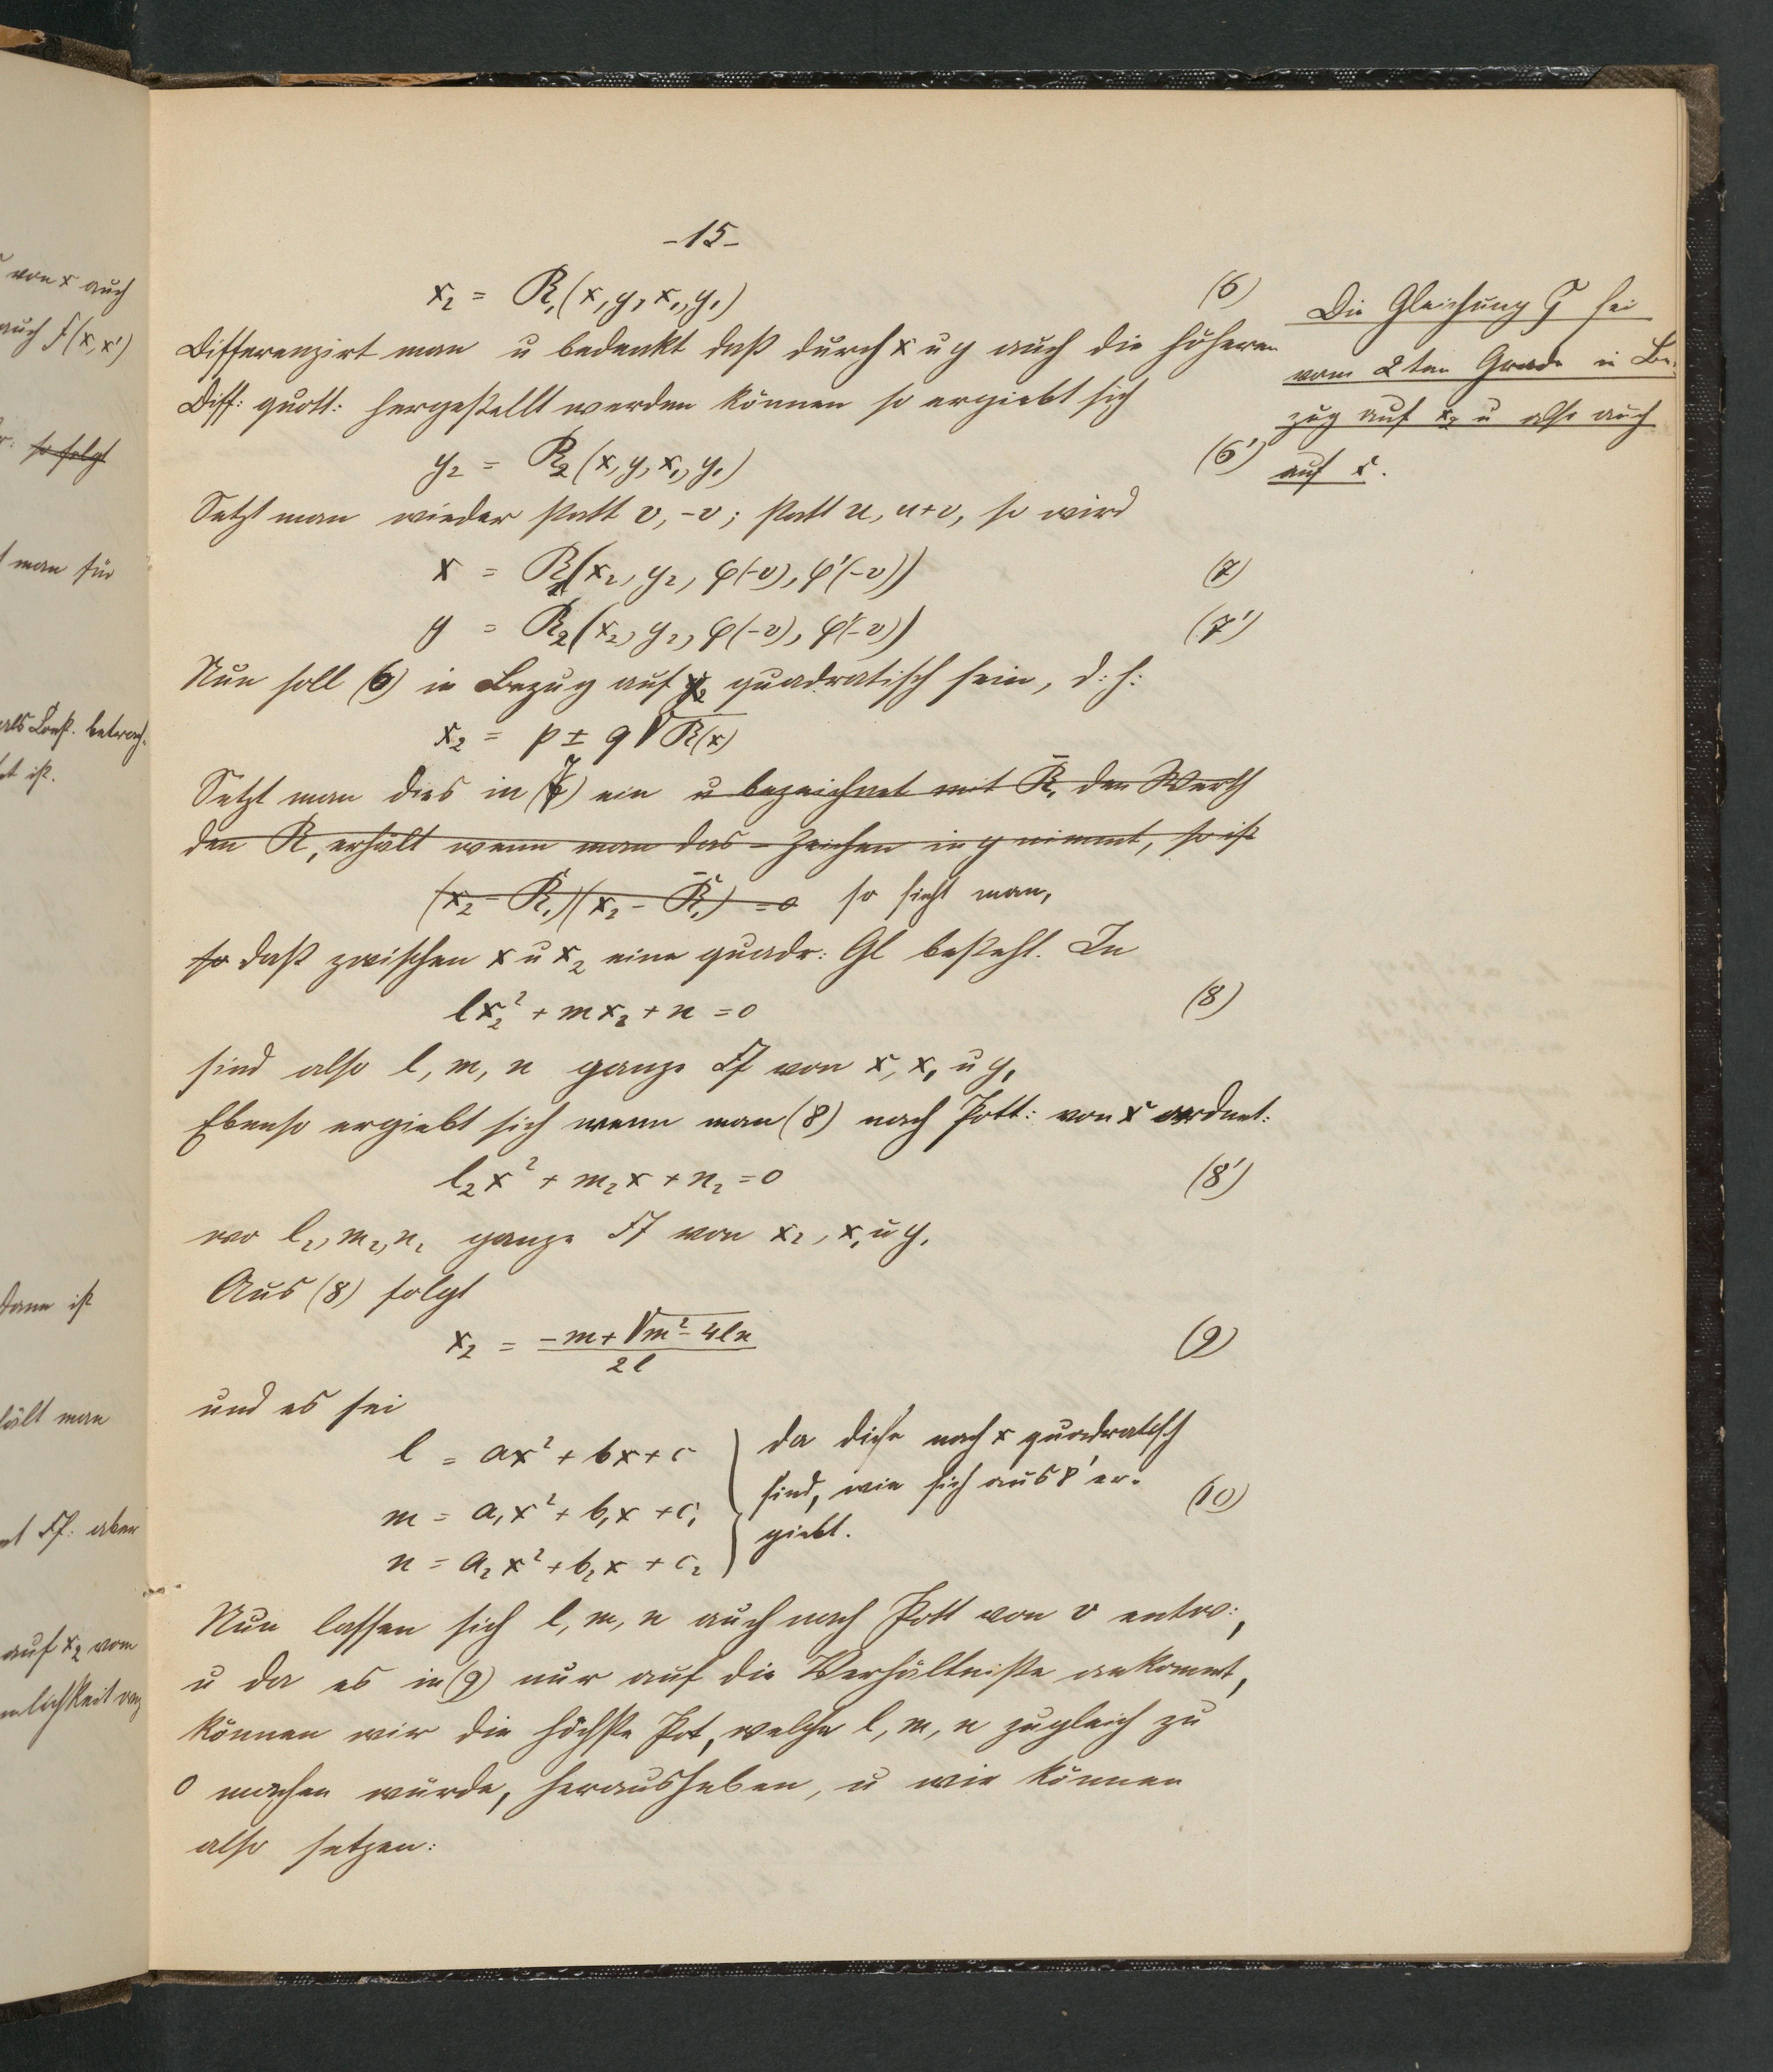 -15-
x₂ = R₁(x, y, x₁, y₁) (6)
Differenzirt man u bedenkt daß durch x u y auch die höheren
Diff: quott: hergestellt werden können so ergiebt sich
y₂ = R₂(x, y, x₁, y₁) (6')
Setzt man wieder statt v, -v; statt u, u+v, so wird
x = R₁(x₂, y₂, φ(-v), φ'(-v)) (7)
y = R₂(x₂, y₂, φ(-v), φ'(-v)) (7')
Nun soll (6) in Bezug auf x₂ quadratisch sein, d: h:
x₂ = p ± q √R(x)
Setzt man dies in (7) ein u bezeichnet mit R̄₁ den Werth
den R₁ erhält wenn man das - Zeichen in y nimmt, so ist
(x₂ - R₁)(x₂ - R̄₁) = 0 so sieht man,
so daß zwischen x u x₂ eine quadr: Gl besteht. In
lx₂² + mx₂ + n = 0 (8)
sind also l, m, n ganze Ff von x, x₁ u y₁
Ebenso ergiebt sich wenn man (8) nach Pott: von x ordnet:
l₂x² + m₂x + n₂ = 0 (8')
wo l₂, m₂, n₂ ganze Ff von x₂, x₁ u y₁
Aus (8) folgt
x₂ = (-m + √(m² - 4ln)) / 2l (9)
und es sei
l = ax² + bx + c
m = a₁x² + b₁x + c₁
n = a₂x² + b₂x + c₂
da diese nach x quadratisch
sind, wie sich aus 8' er-
giebt. (10)
Nun lassen sich l, m, n auch nach Pott von v entw:,
u da es in (9) nur auf die Verhältnisse ankommt,
können wir die höchste Pot, welche l, m, n zugleich zu
0 machen würde, herausheben, u wir können
also setzen:
Die Gleichung G sei
vom 2ten Grade in Be-
zug auf x₂ u also auch
auf x.
von x auch
auch f(x, x')
so folgt
man für
als Const. betrach-
tet ist.
dann ist
hält man
Ff: aber
auf x₂ vom